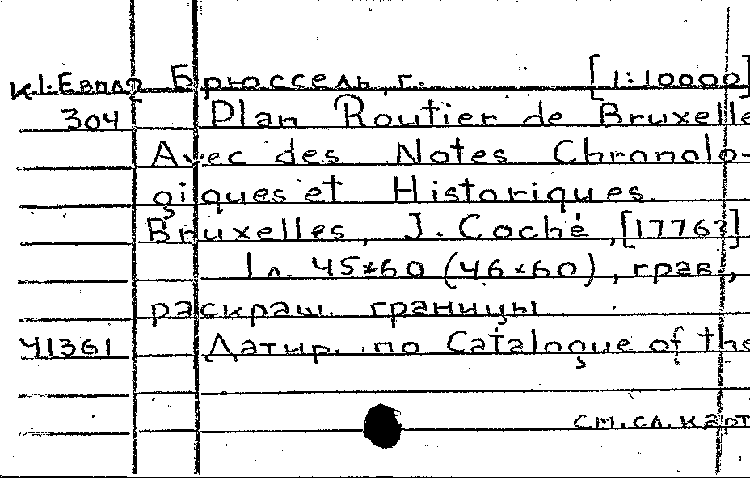 Брюссель, г. [1:10000]
304 Plan Routier de Bruxelle
Avec des Notes Chronolo-
giques et Historiques.
Bruxelles, J. Coché, [1776?]
1 л. 45×60 (46×60), грав.,
раскраш. границы
41361 Датир. по Catalogue of the
см. сл. карт